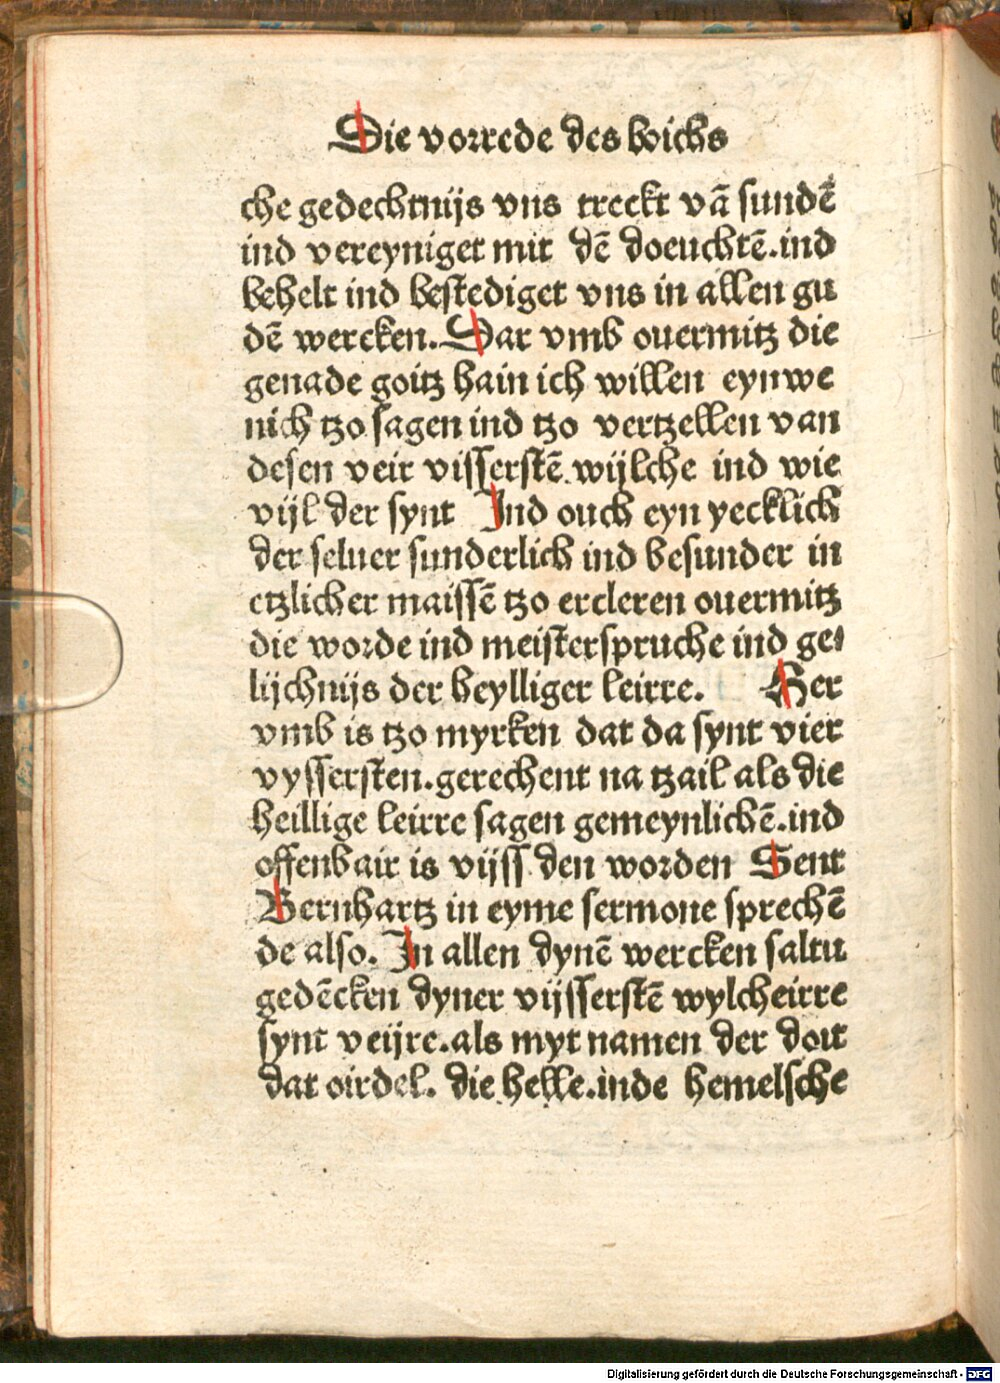 Die vorrede des boichs
che gedechtnijs vns treckt vā sundē
ind vereyniget mit dē doeuchtē.ind
behelt ind bestediget vns in allen gu
dē wercken. Dar vmb ouermitz die
genade goitz hain ich willen eynwe
nich tzo sagen ind tzo vertzellen van
desen veir visserstē wijlche ind wie
vijl der synt Ind ouch eyn yecklich
der seluer sunderlich ind besunder in
etzlicher maissē tzo ercleren ouermitz
die worde ind meisterspruche ind ge⸗
lijchnijs der heylliger leirre. Her
vmb is tzo myrken dat da synt vier
vyssersten.gerechent na tzail als die
heillige leirre sagen gemeynlichē.ind
offenbair is vijss den worden Sent
Bernhartz in eyme sermone sprechē
de also. In allen dynē wercken saltu
gedēcken dyner vijsserstē wylcheirre
synt veijre.als myt namen der doit
dat oirdel. die helle.inde hemelsche
Digitalisierung gefördert durch die Deutsche Forschungsgemeinschaft - DFG